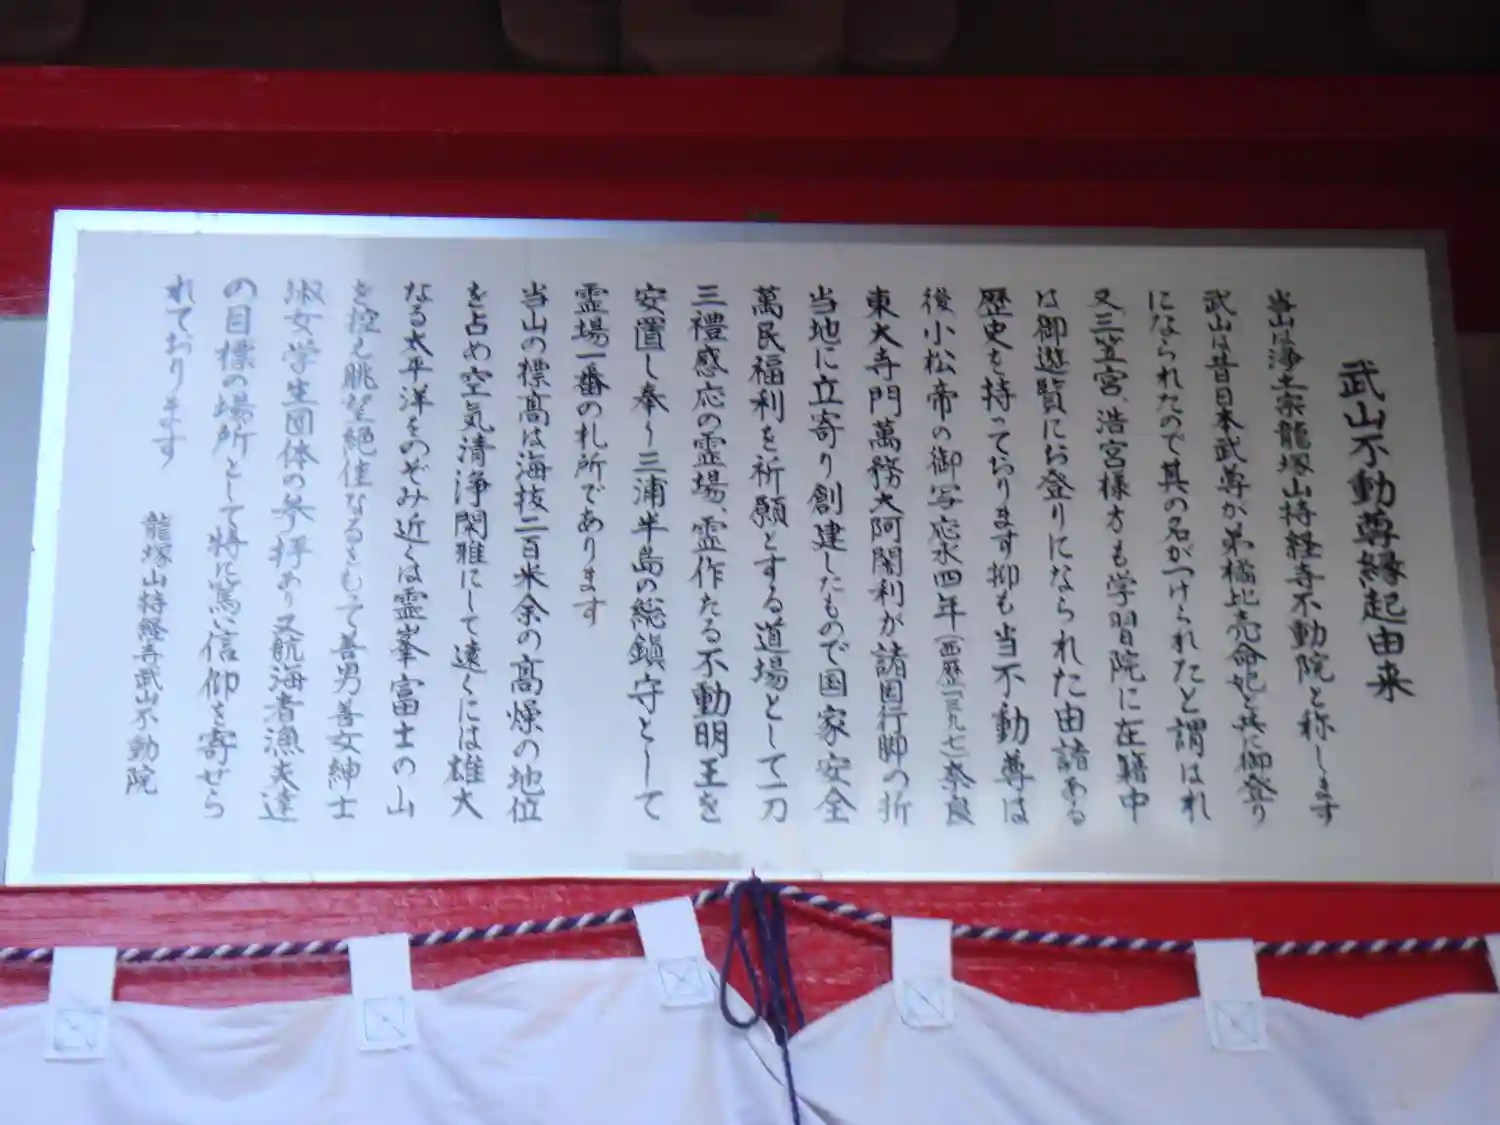 武山不動尊縁起由来
当山は浄土宗龍塚山持経寺不動院と称します
武山は昔日本武尊が弟橘比売命妃と共に御登り
になられたので其の名がつけられたと謂はれ
又三笠宮、浩宮様方も学習院に在籍中
は御遊覧にお登りになられた由諸ある
歴史を持っております抑も当不動尊は
後小松帝の御写応永四年(西歴一三九七)奈良
東大寺門萬務大阿闍利が諸国行脚の折
当地に立寄り創建したもので国家安全
萬民福利を祈願とする道場として一刀
三禮感応の霊場、霊作たる不動明王を
安置し奉り三浦半島の総鎮守として
霊場一番の札所であります
当山の標高は海抜二百米余の高燥の地位
を占め空気清浄閑雅にして遠くには雄大
なる太平洋をのぞみ近くは霊峯富士の山
を控え眺望絶佳なるをもて善男善女紳士
淑女学生団体の参拝あり又航海者漁夫達
の目標の場所として特に篤い信仰を寄せら
れております
龍塚山持経寺武山不動院